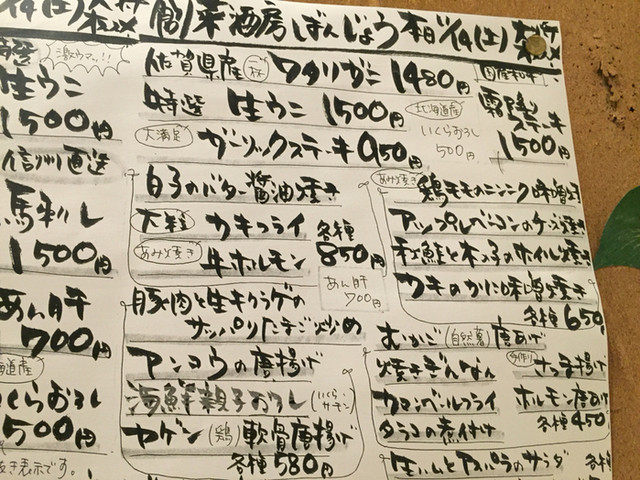 創菜酒房 ぼんじょう 本日 11/14(土)
11/14(土)
激ウマッ!!
生ウニ
1500円
信州直送
馬刺し
1500円
あん肝
700円
いくらおろし
500円
佐賀県産 一杯 ワタリガニ 1480円
特選 生ウニ 1500円
大満足 ガーリックステーキ 950円
北海道産
いくらおろし
500円
国産和牛
霜降り
ステーキ
1500円
白子のバター醤油焼き
大粒 カキフライ
あみ焼き 牛ホルモン
各種
850円
あん肝
700円
あみ焼き 鶏モモのニンニク味噌焼き
アップルベーコンのチーズ焼き
秋鮭と木の子のホイル焼き
カキのかに味噌焼き
各種650
豚肉と生キクラゲの
サッパリたまご炒め
アンコウの唐揚げ
海鮮親子おろし (いくら・サーモン)
ヤゲン(鶏)軟骨唐揚げ
各種580円
むかご(自然薯)唐あげ
焼きぎんなん
手作り さつま揚げ
カマンベールフライ
ホルモン唐あげ
タラコの煮付け
各種450
生ハムとアボカドのサラダ
抜き表示です。